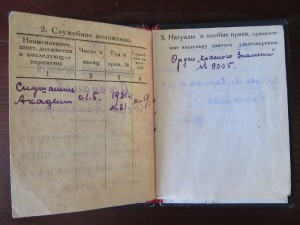 2. Служебное положение.
Наименование
шт., должности
и последующие
перемены
Число и
месяц
Год и
прик. №
1
2
3
4
Слушатель
Академии
01.5.
1931 г.
№ 21.
3. Награды и особые права, присвоен-
ные владельцу данного удостоверения
Орден „Красного Знамени"
№ 9005.